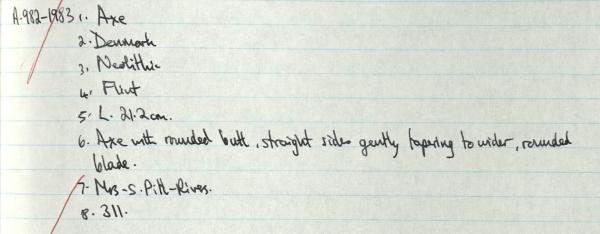 A.982-1983 1. Axe
2. Denmark
3. Neolithic
4. Flint
5. L. 21.2cm.
6. Axe with rounded butt, straight sides gently tapering to wider, rounded
blade.
7. Mrs. S. Pitt-Rivers.
8. 311.